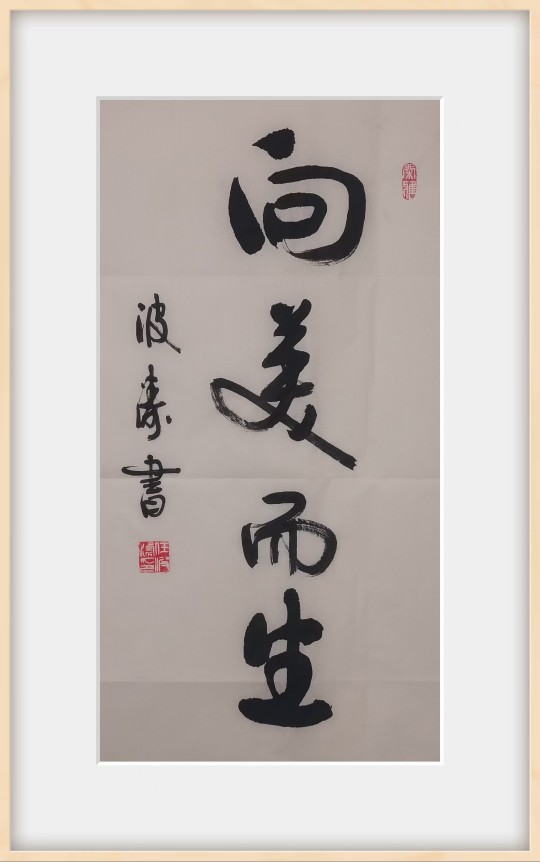 向美而生
波涛書